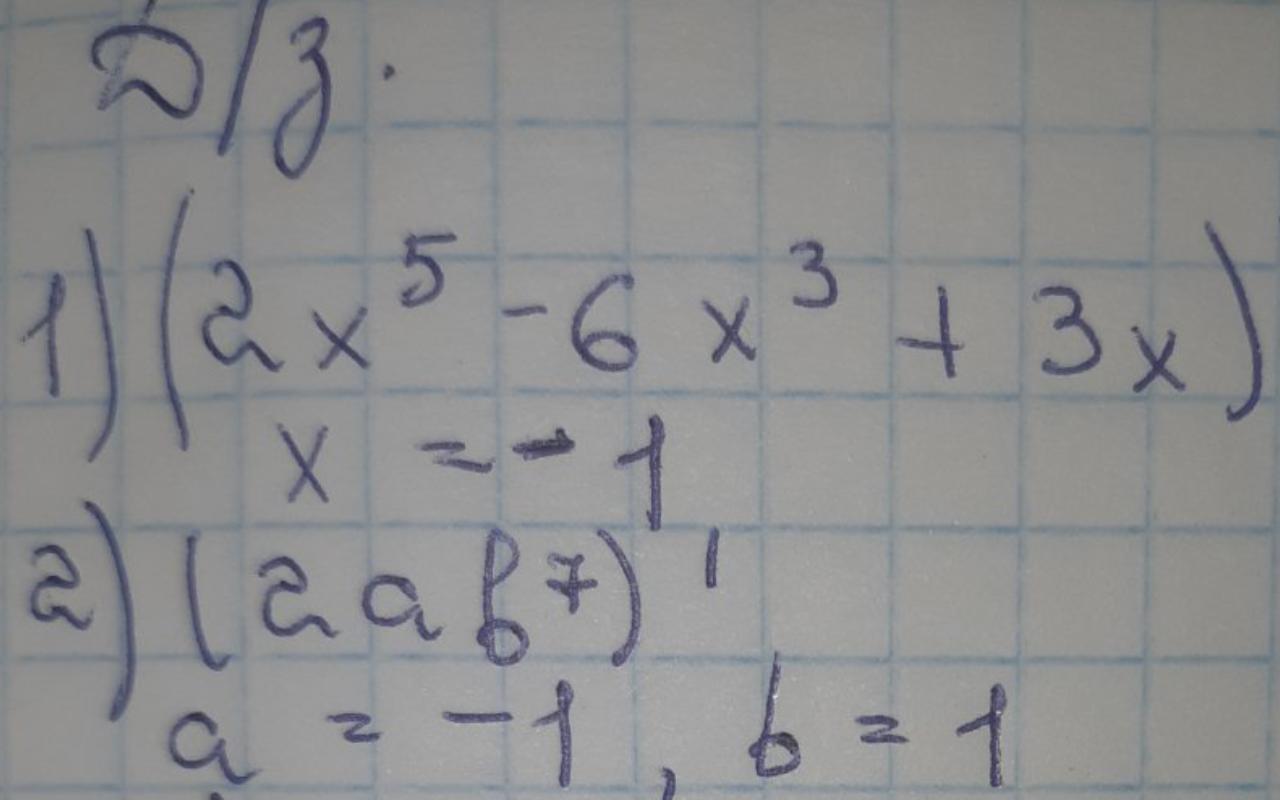 Д/з.
1) (2x⁵ - 6x³ + 3x)
x = - 1
2) (2ab⁷)'
a = -1, b = 1